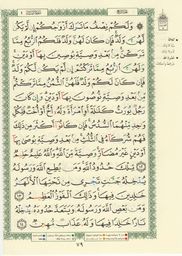 ۞ وَلَكُمْ نِصْفُ مَا تَرَكَ أَزْوَٰجُكُمْ إِن لَّمْ يَكُن
لَّهُنَّ وَلَدٌ فَإِن كَانَ لَهُنَّ وَلَدٌ فَلَكُمُ ٱلرُّبُعُ مِمَّا
تَرَكْنَ مِنۢ بَعْدِ وَصِيَّةٍ يُوصِينَ بِهَآ أَوْ دَيْنٍ
وَلَهُنَّ ٱلرُّبُعُ مِمَّا تَرَكْتُمْ إِن لَّمْ يَكُن لَّكُمْ وَلَدٌ
فَإِن كَانَ لَكُمْ وَلَدٌ فَلَهُنَّ ٱلثُّمُنُ مِمَّا تَرَكْتُم
مِّنۢ بَعْدِ وَصِيَّةٍ تُوصُونَ بِهَآ أَوْ دَيْنٍ وَإِن كَانَ
رَجُلٌ يُورَثُ كَلَٰلَةً أَوِ ٱمْرَأَةٌ وَلَهُۥٓ أَخٌ أَوْ أُخْتٌ
فَلِكُلِّ وَٰحِدٍ مِّنْهُمَا ٱلسُّدُسُ فَإِن كَانُوٓا۟ أَكْثَرَ مِن
ذَٰلِكَ فَهُمْ شُرَكَآءُ فِى ٱلثُّلُثِ مِنۢ بَعْدِ وَصِيَّةٍ يُوصَىٰ بِهَآ
أَوْ دَيْنٍ غَيْرَ مُضَآرٍّ وَصِيَّةً مِّنَ ٱللَّهِ وَٱللَّهُ عَلِيمٌ حَلِيمٌ ١٢
تِلْكَ حُدُودُ ٱللَّهِ وَمَن يُطِعِ ٱللَّهَ وَرَسُولَهُۥ
يُدْخِلْهُ جَنَّٰتٍ تَجْرِى مِن تَحْتِهَا ٱلْأَنْهَٰرُ
خَٰلِدِينَ فِيهَا وَذَٰلِكَ ٱلْفَوْزُ ٱلْعَظِيمُ ١٣
وَمَن يَعْصِ ٱللَّهَ وَرَسُولَهُۥ وَيَتَعَدَّ حُدُودَهُۥ يُدْخِلْهُ
نَارًا خَٰلِدًا فِيهَا وَلَهُۥ عَذَابٌ مُّهِينٌ ١٤
٧٩